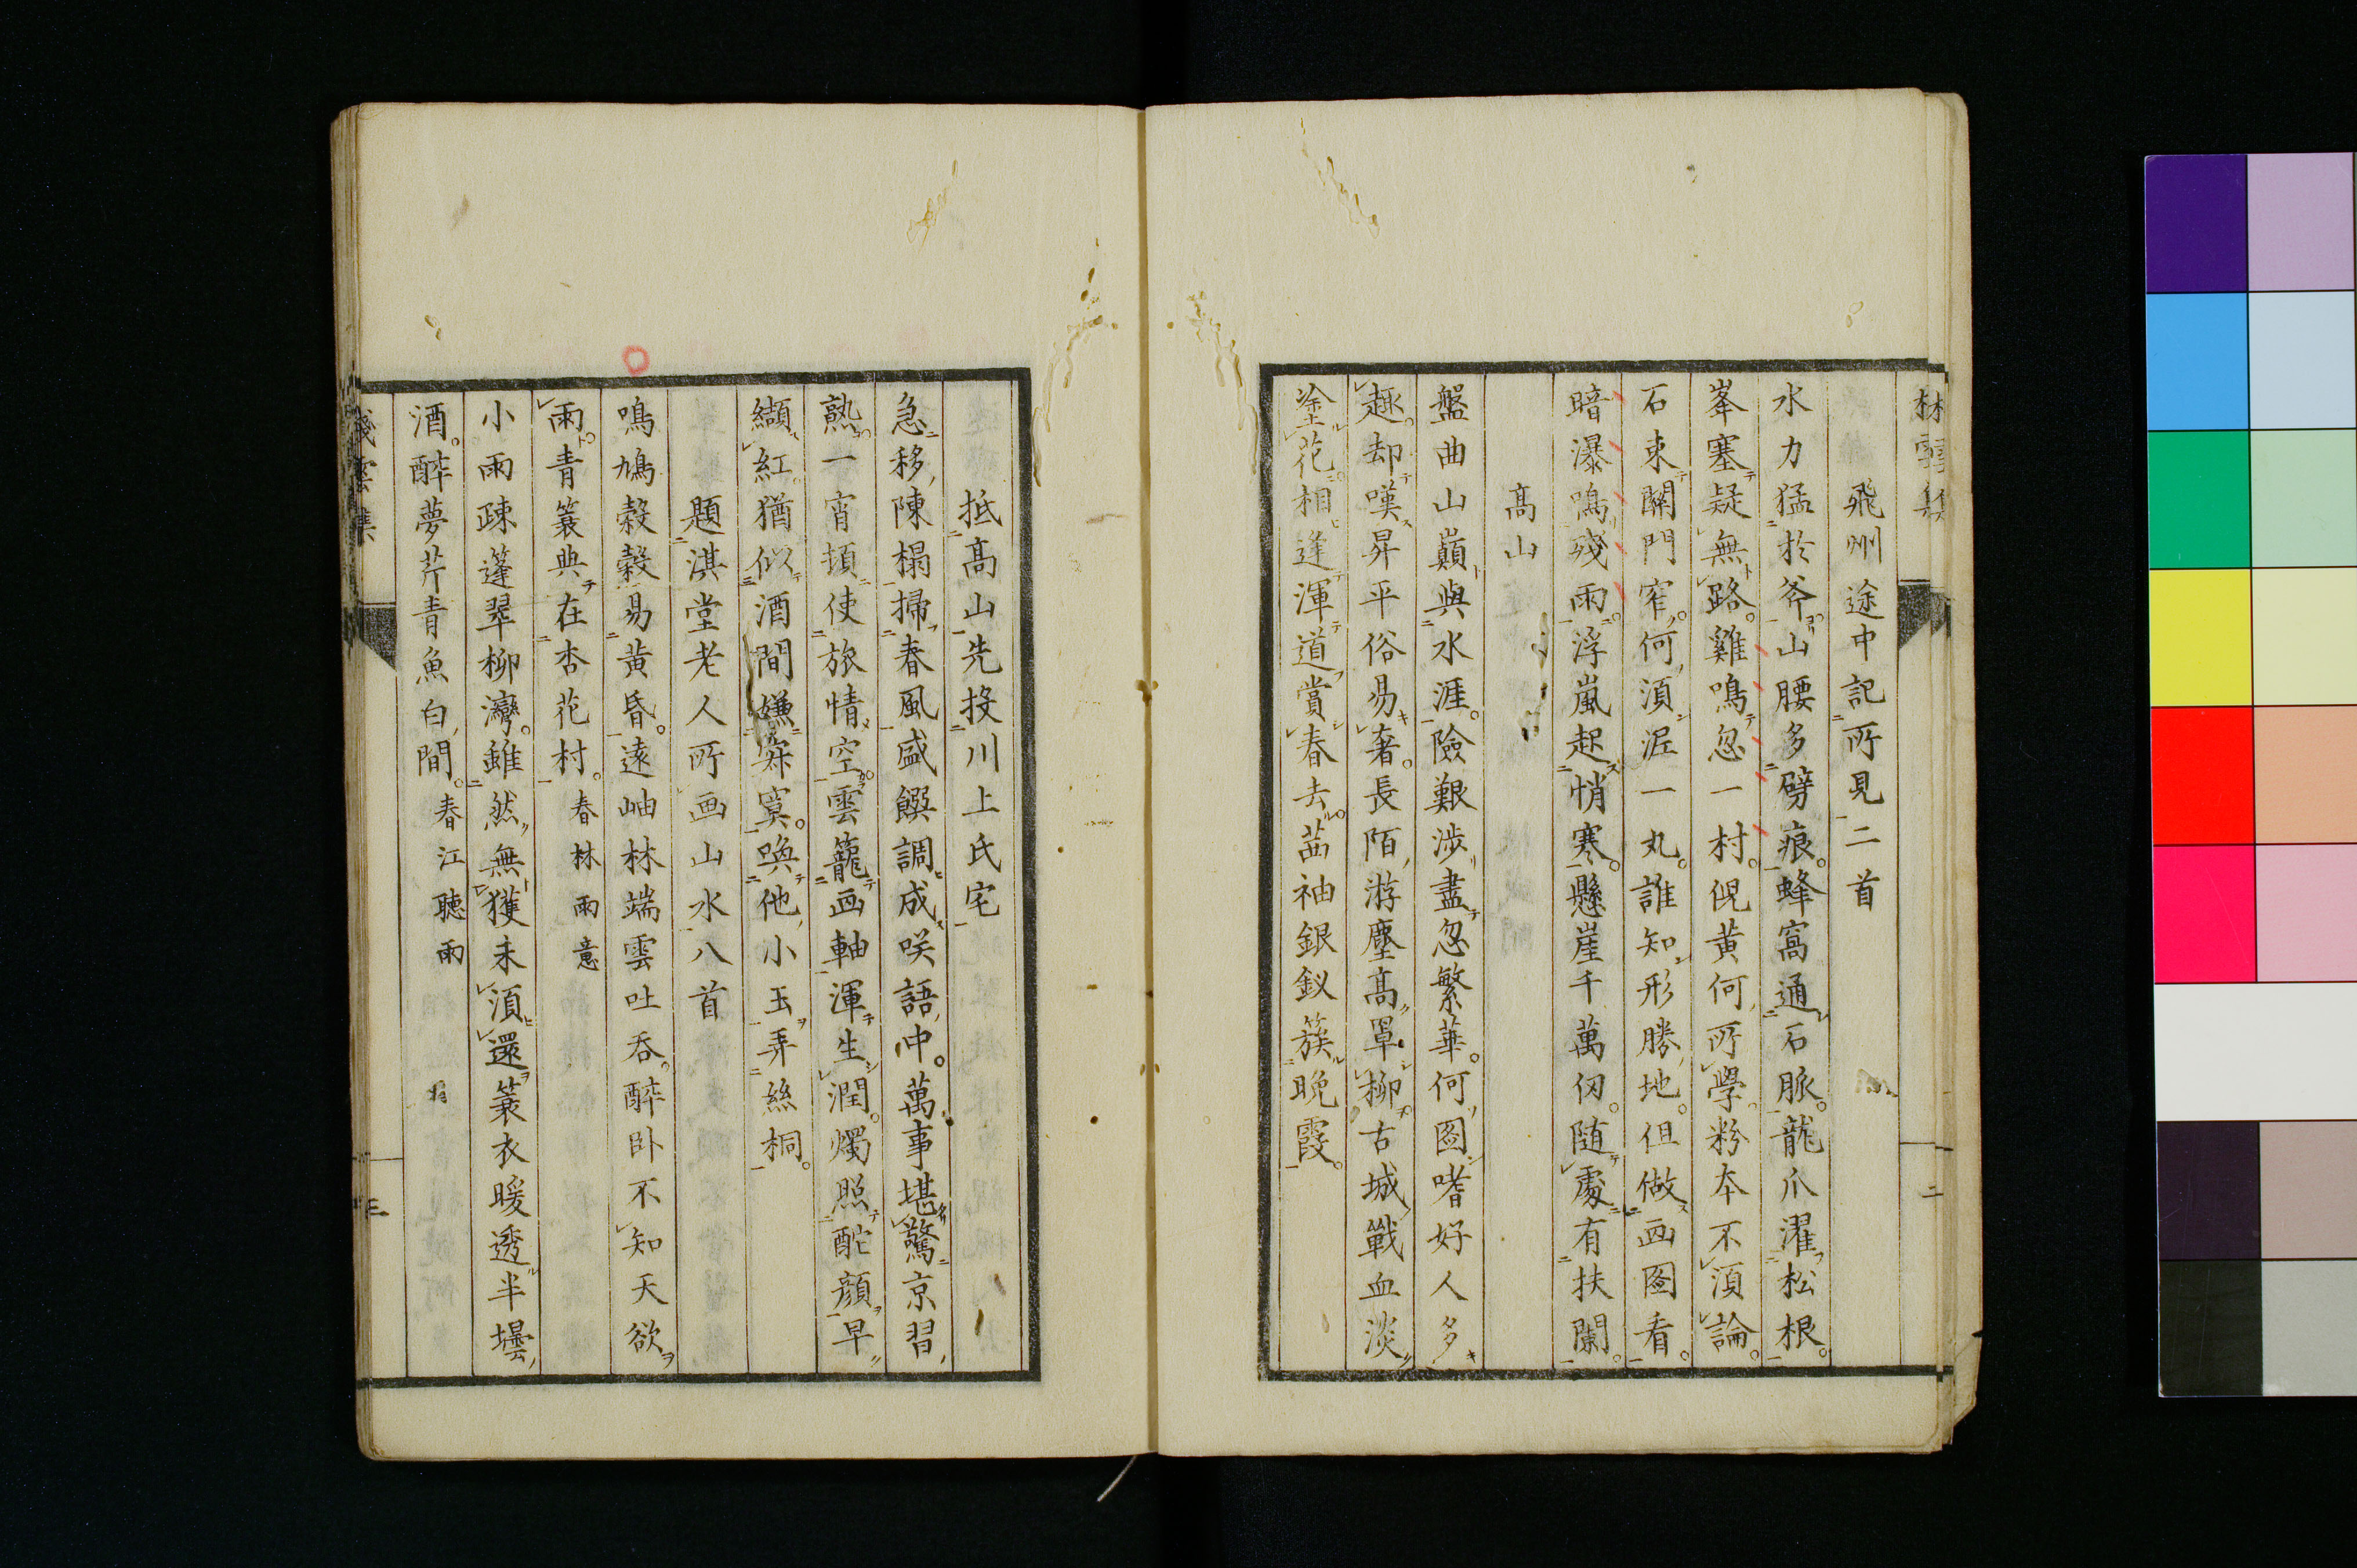 飛州途中記所見二首
水力猛於斧山腰多劈痕蜂窩通石脈龍爪濯松根
峯塞疑無路雞鳴忽一村倪黄何所學粉本不須論
石束關門窄何須泥一丸誰知形勝地但做画圖看
暗瀑鳴殘雨浮嵐起悄寒懸崖千萬仞随處有扶闌
高山
盤曲山巔與水涯險艱渉盡忽繁華何圖嗜好人多
趣却嘆昇平俗易奢長陌游塵高罩柳古城戰血淡
塗花相逢渾道賞春去茜袖銀釵簇晚霞
抵高山先投川上氏宅
急移陳榻掃春風盛饌調成咲語冲萬事堪驚京習
熟一宵頓使旅情空雲籠画軸渾生潤燭照酡顔早
纈紅猶似酒間嫌寂寞喚他小玉弄絲桐
題淇堂老人所画山水八首
鳴鳩穀穀易黄昏遠岫林端雲吐呑醉卧不知天欲
雨青簑典在杏花村 春林雨意
小雨疎蓬翠柳灣雖然無獲未須還簑衣暖透半壜
酒醉夢芹青魚白間 春江聴雨
三